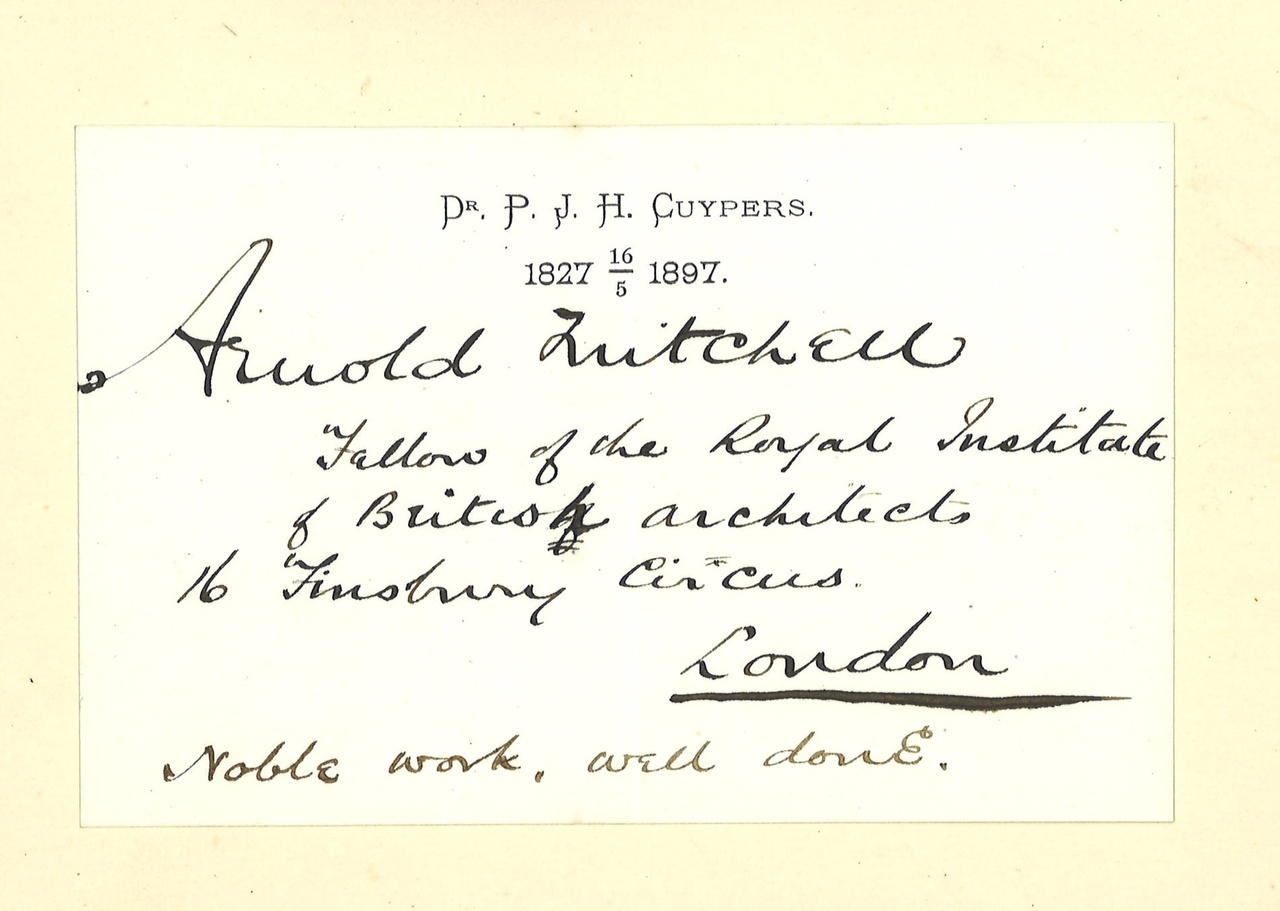 Dr. P. J. H. Cuypers.
1827 16/5 1897.
Arnold Mitchell
Fellow of the Royal Institute
of British architects
16 Finsbury Circus.
London
Noble work, well done.